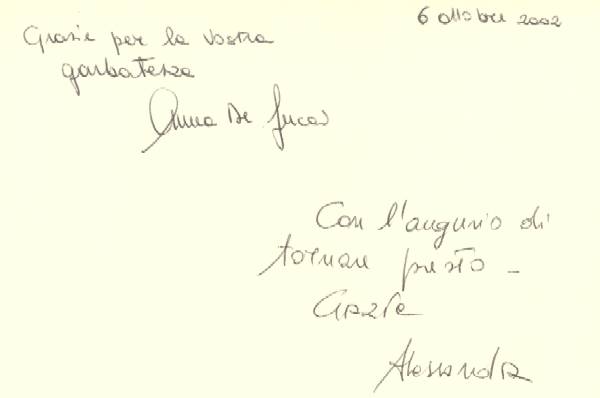 6 ottobre 2002
Grazie per la vostra
garbatezza
Anna De Lucas
Con l'augurio di
tornare presto -
Grazie
Alessandra